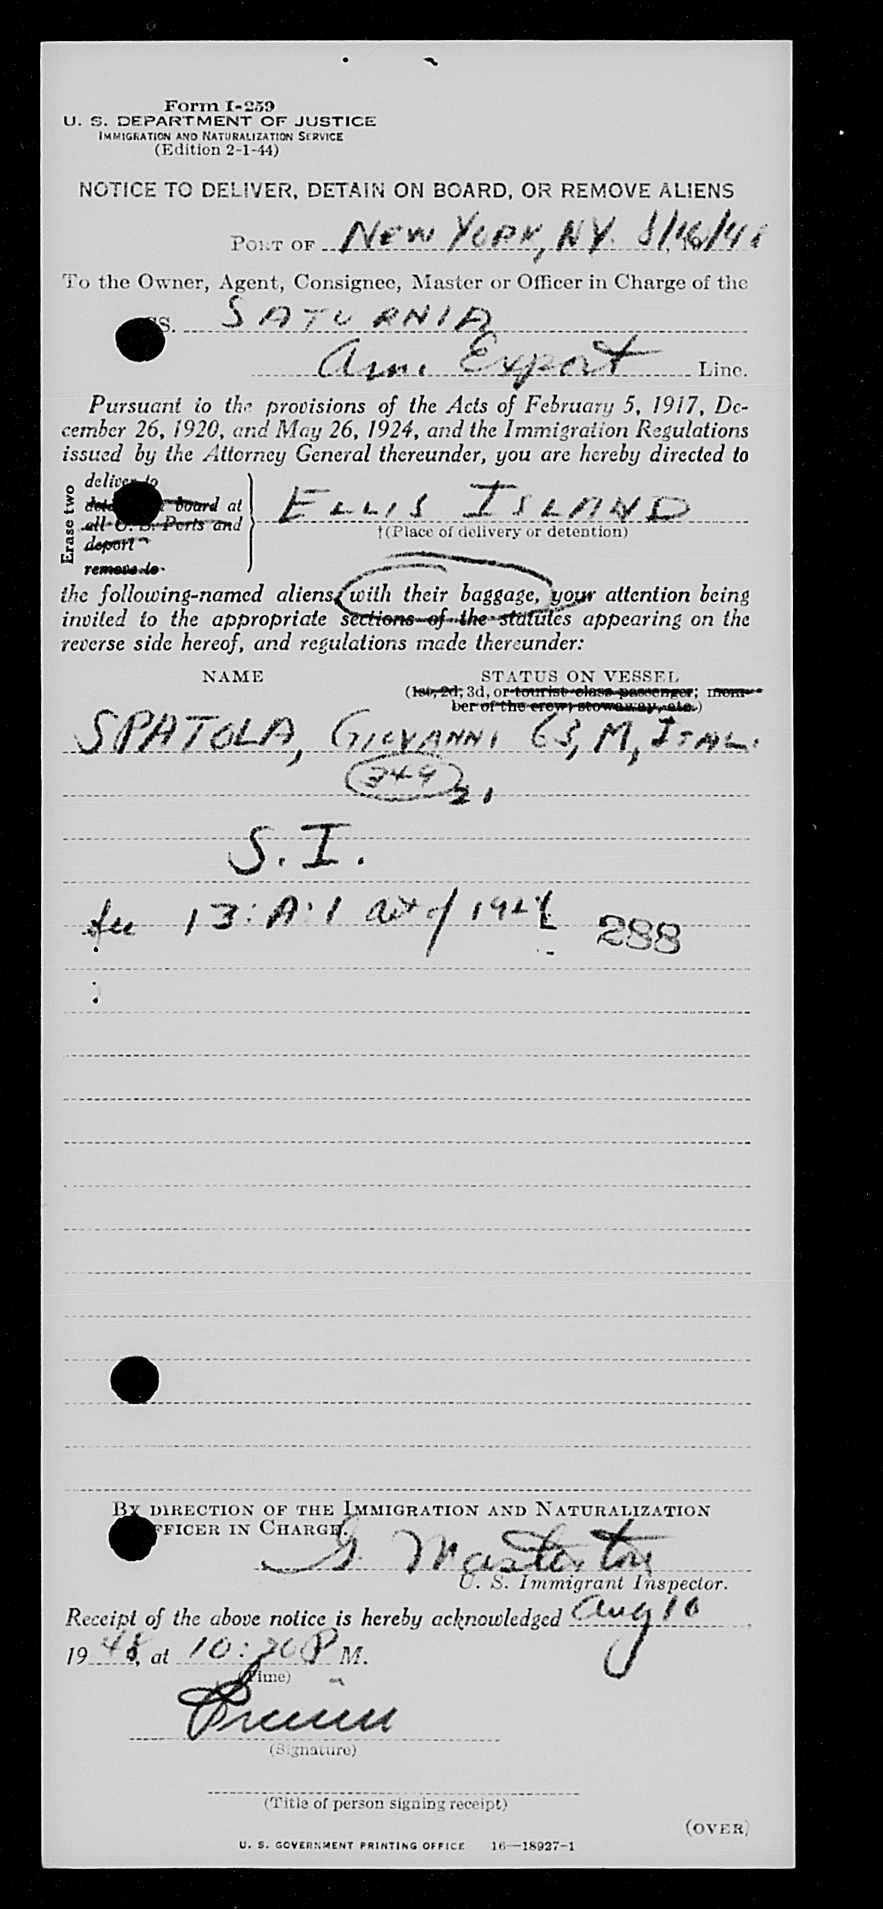 Form I-259
U. S. DEPARTMENT OF JUSTICE
IMMIGRATION AND NATURALIZATION SERVICE
(Edition 2-1-44)
NOTICE TO DELIVER, DETAIN ON BOARD, OR REMOVE ALIENS
PORT OF NEW YORK, NY. 8/16/48
To the Owner, Agent, Consignee, Master or Officer in Charge of the
SS. SATURNIA
Am. Export Line.
Pursuant to the provisions of the Acts of February 5, 1917, De-
cember 26, 1920, and May 26, 1924, and the Immigration Regulations
issued by the Attorney General thereunder, you are hereby directed to
Erase two
deliver to
board at
all U. S. Ports and
deport
remove to
ELLIS ISLAND
†(Place of delivery or detention)
the following-named aliens, with their baggage, your attention being
invited to the appropriate sections of the statutes appearing on the
reverse side hereof, and regulations made thereunder:
NAME STATUS ON VESSEL
(1st, 2d, 3d, or tourist class passenger; mem-
ber of the crew; stowaway, etc.)
SPATOLA, GIOVANNI 63, M, ITAL.
349 21
S. I.
Sec 13:A:1 act of 1924 288
BY DIRECTION OF THE IMMIGRATION AND NATURALIZATION
OFFICER IN CHARGE.
G. Masterton
U. S. Immigrant Inspector.
Receipt of the above notice is hereby acknowledged Aug 16,
1948, at 10:20 P M.
(Time)
(Signature)
(Title of person signing receipt)
(OVER)
U. S. GOVERNMENT PRINTING OFFICE 16—18927-1